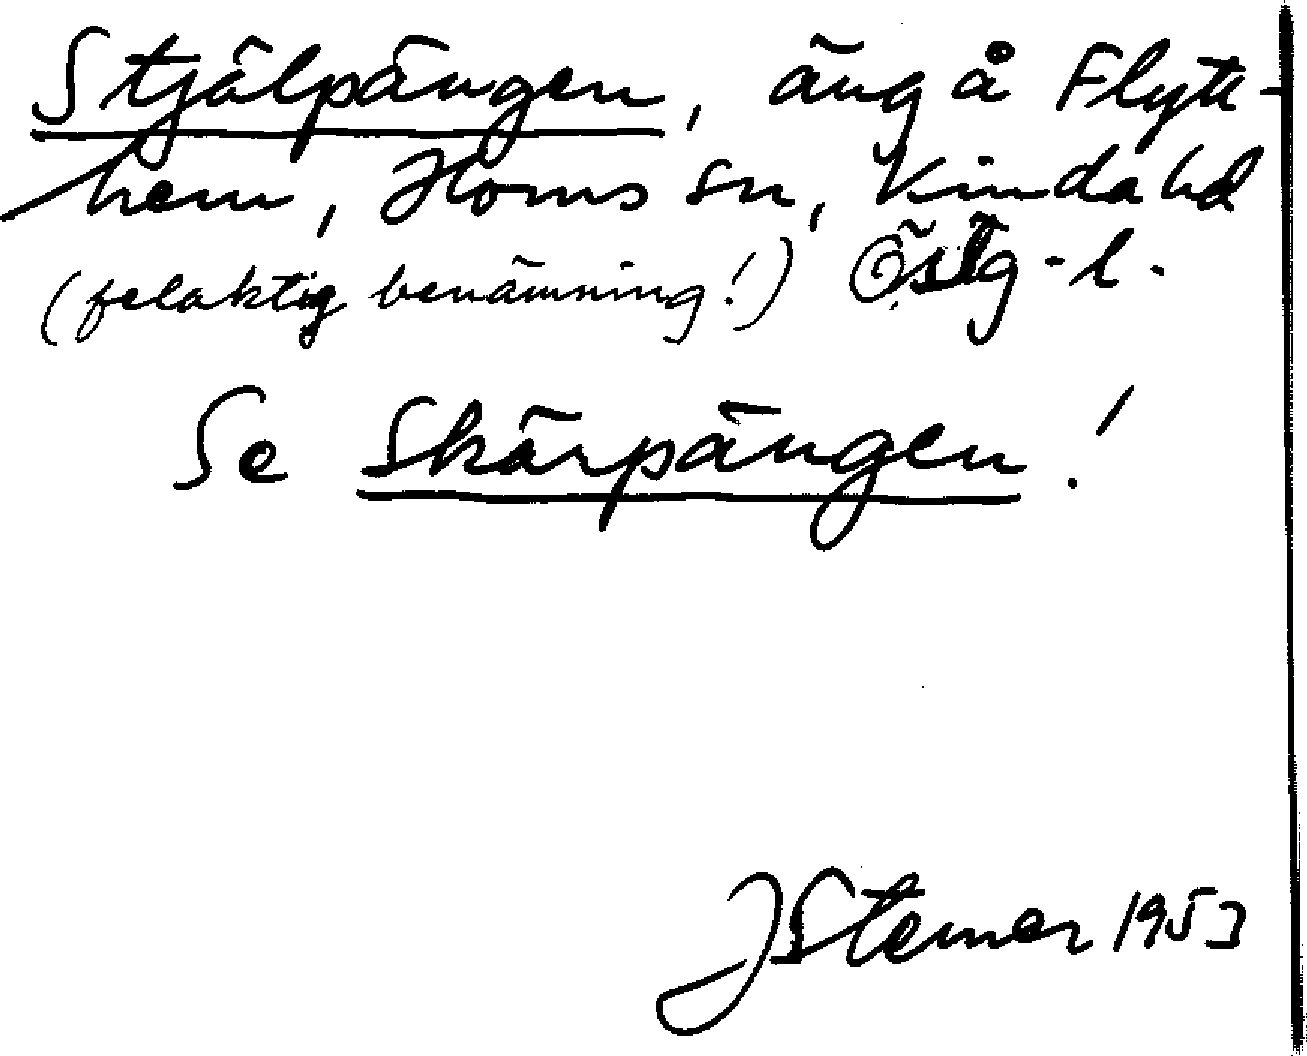 Stjälpängen, äng å Flytt-
hem, Horns sn, Kinda hd
(felaktig benämning!) Östg.l.
Se Skärpängen!
J Sterner 1953